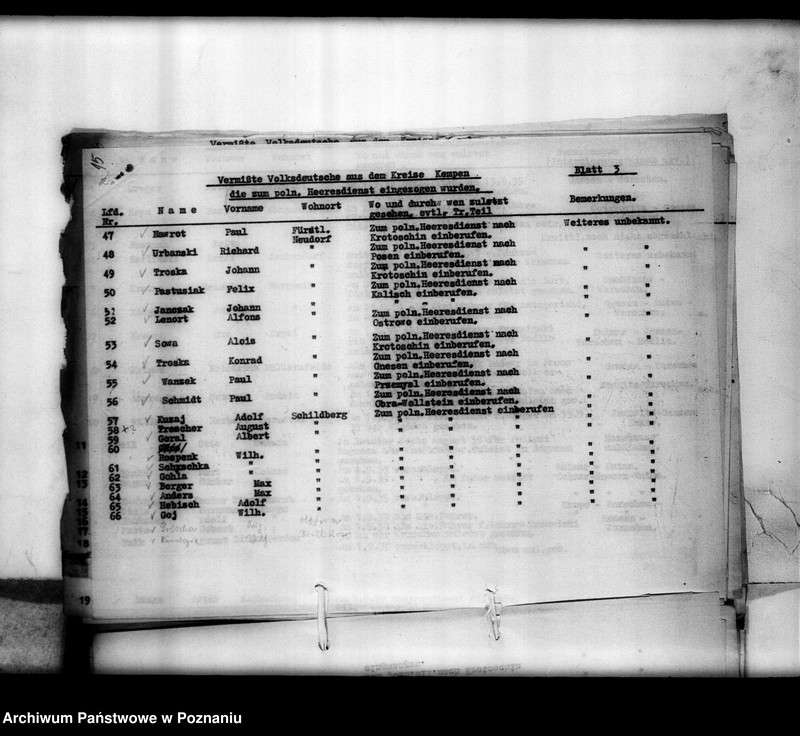 15
Vermißte Volksdeutsche aus dem Kreise Kempen Blatt 3
die zum poln. Heeresdienst eingezogen wurden.
Lfd. Nr. Name Vorname Wohnort Wo und durch wen zuletzt gesehen, evtl. Tr.Teil Bemerkungen.
47 Nawrot Paul Fürstl. Neudorf Zum poln.Heeresdienst nach Krotoschin einberufen. Weiteres unbekannt.
48 Urbanski Richard " Zum poln.Heeresdienst nach Posen einberufen. " "
49 Troska Johann " Zum poln.Heeresdienst nach Krotoschin einberufen. " "
50 Pastusiak Felix " Zum poln.Heeresdienst nach Kalisch einberufen. " "
51 Janczak Johann " " " " " "
52 Lenort Alfons " Zum poln.Heeresdienst nach Ostrowo einberufen. " "
53 Sowa Alois " Zum poln.Heeresdienst nach Krotoschin einberufen. " "
54 Troska Konrad " Zum poln.Heeresdienst nach Gnesen einberufen. " "
55 Wanzek Paul " Zum poln.Heeresdienst nach Przemysl einberufen. " "
56 Schmidt Paul " Zum poln.Heeresdienst nach Obra-Wollstein einberufen. " "
57 Kuzaj Adolf Schildberg Zum poln.Heeresdienst einberufen " "
58 x? Trescher August " " " " " "
59 Goral Albert " " " " " "
60 Rospenk Wilh. " " " " " "
61 Sehxschka " " " " " " "
62 Gohla " " " " " " "
63 Berger Max " " " " " "
64 Anders Max " " " " " "
65 Hebisch Adolf " " " " " "
66 Goj Wilh. " " " " " "
11
12
13
14
15
16
17
18
19
Archiwum Państwowe w Poznaniu